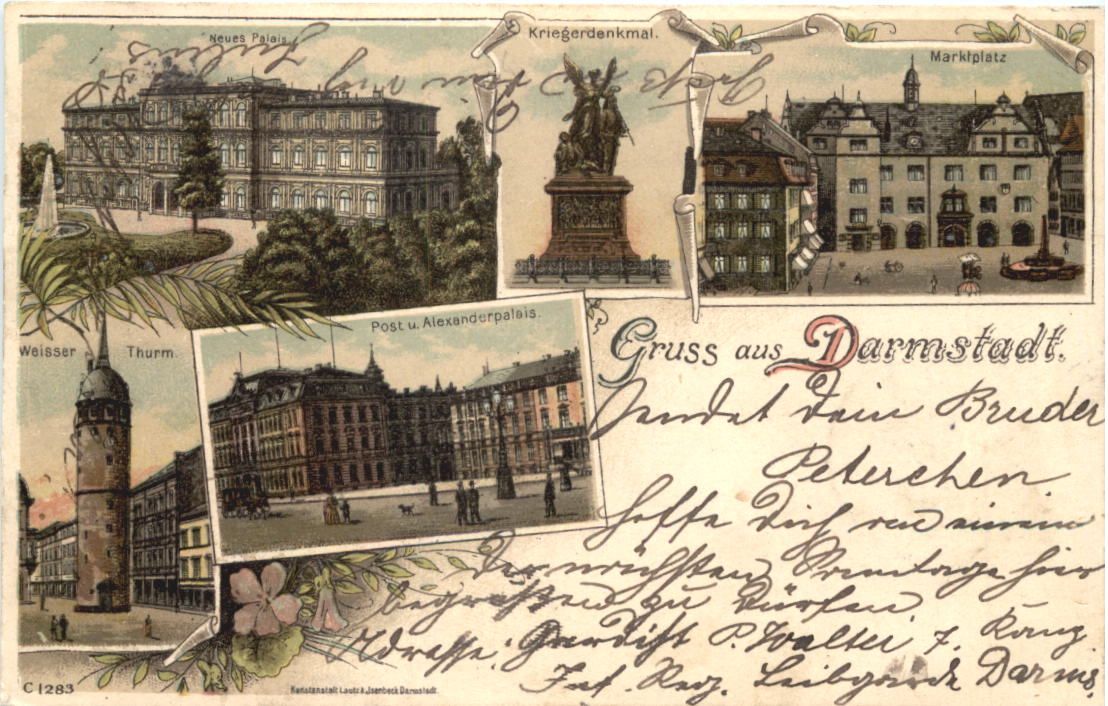 Neues Palais.
Kriegerdenkmal.
Marktplatz
Weisser Thurm.
Post u. Alexanderpalais.
Gruss aus Darmstadt.
sendet Dein Bruder
Peterchen
hoffe Dich an einem
der nächsten Sonntage hier
begrüßen zu dürfen
Adresse: Gardist P. Walter 7. Komp.
Inf. Reg. Leibgarde Darms.
C 1283
Kunstanstalt Lautz & Isenbeck Darmstadt.